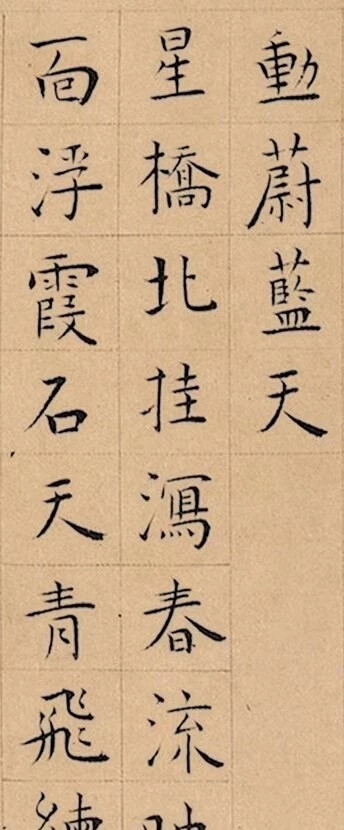 動蔚藍天
星橋北挂瀉春流
靣浮霞石天青飛